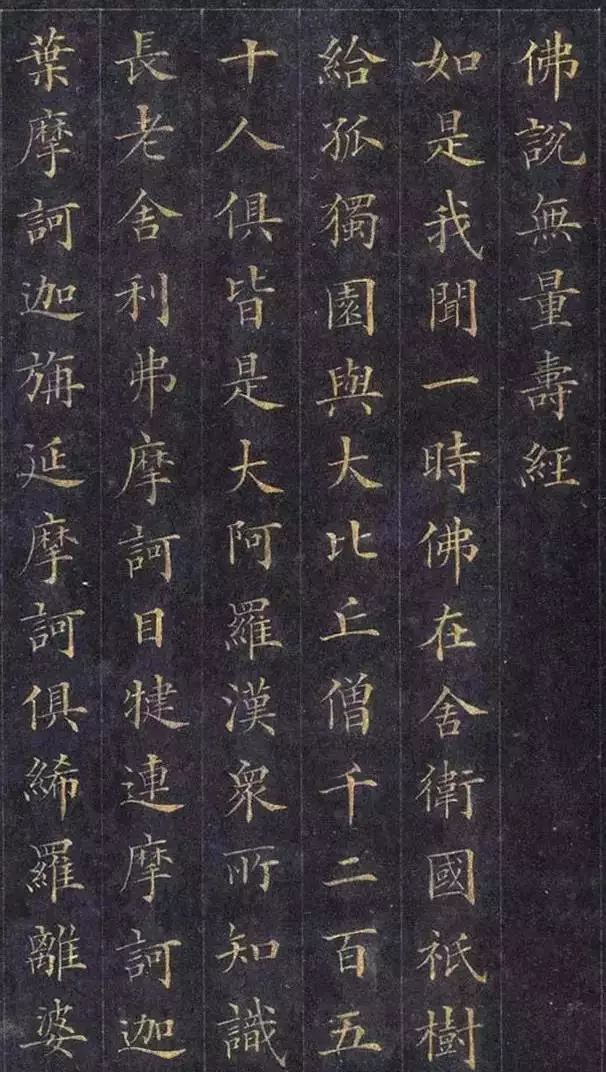 佛說無量壽經
如是我聞一時佛在舍衛國祇樹
給孤獨園與大比丘僧千二百五
十人俱皆是大阿羅漢眾所知識
長老舍利弗摩訶目犍連摩訶迦
葉摩訶迦旃延摩訶俱絺羅離婆